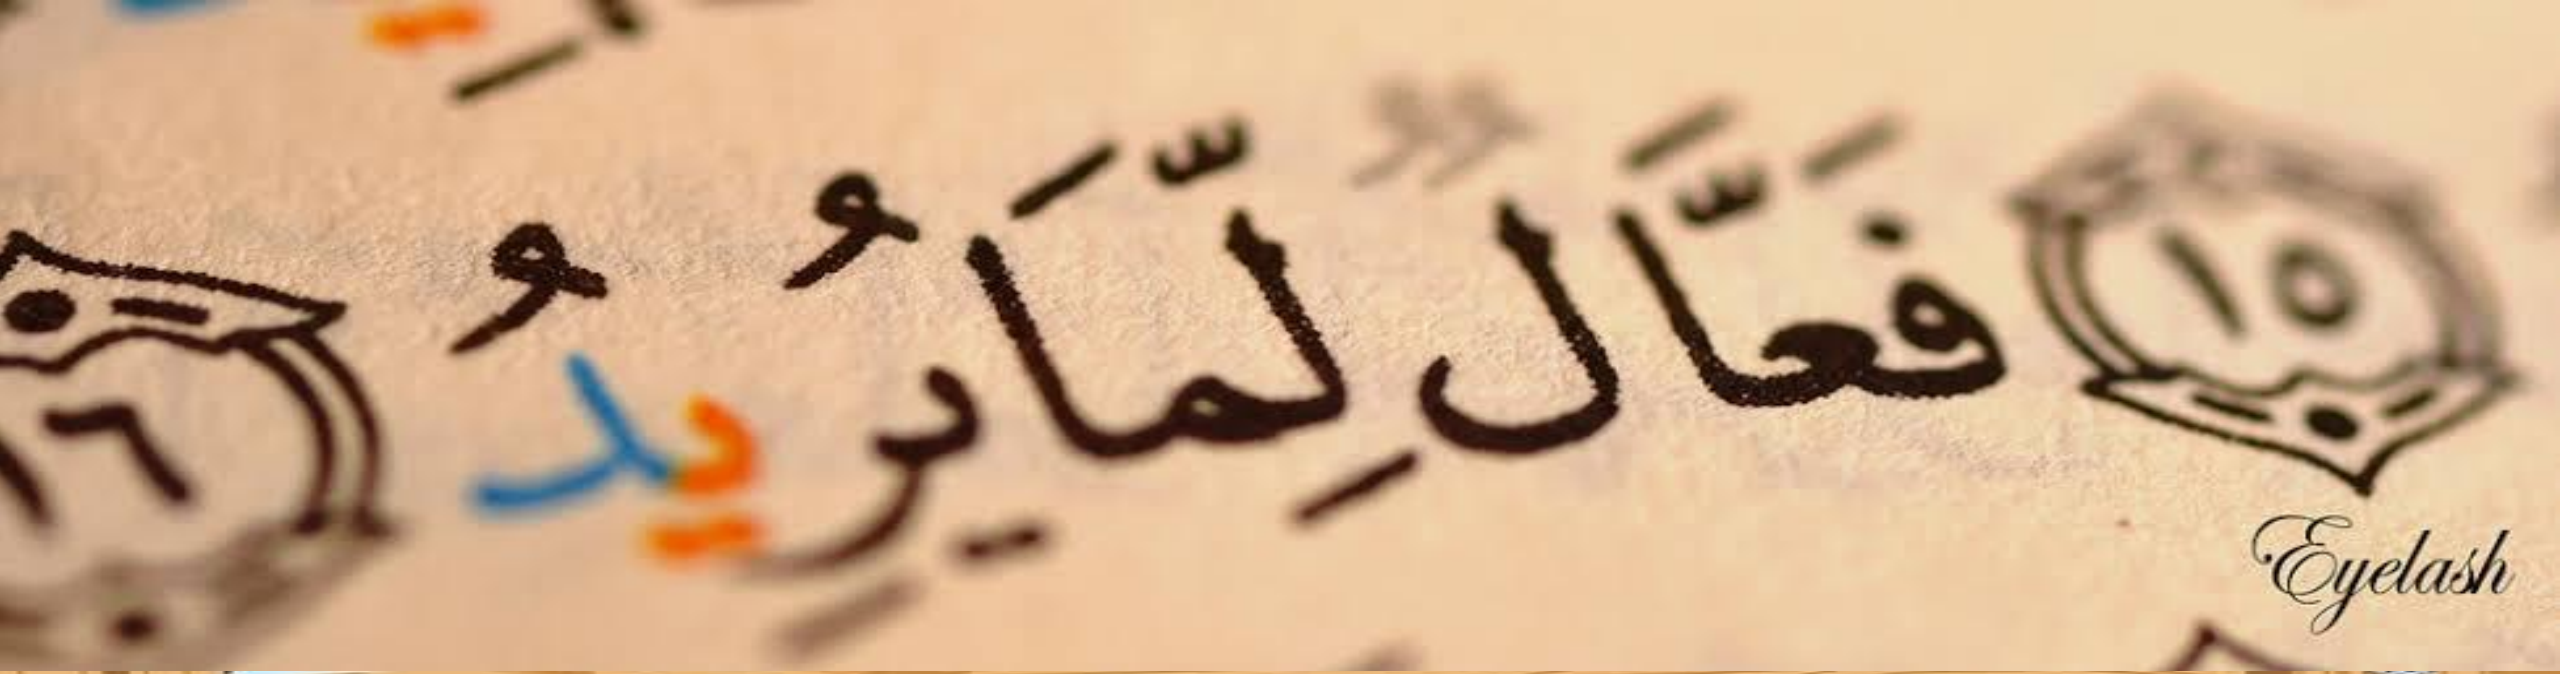 ١٥ فَعَّالٌ لِّمَا يُرِيدُ ١٦
Eyelash